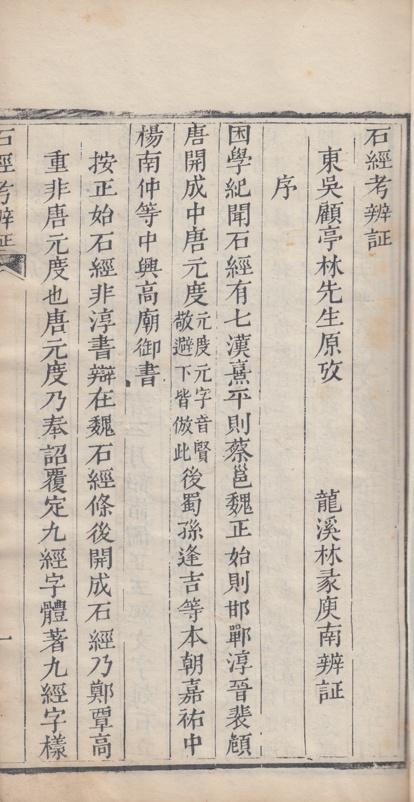 石經考辨証
東吳顧亭林先生原攷 龍溪林彖庾南辨証
序
困學紀聞石經有七漢熹平則蔡邕魏正始則邯鄲淳晉裴頠
唐開成中唐元度元度元字音賢敬避下皆倣此後蜀孫逢吉等本朝嘉祐中
楊南仲等中興高廟御書
按正始石經非淳書辯在魏石經條後開成石經乃鄭覃高
重非唐元度也唐元度乃奉詔覆定九經字體著九經字樣
石經考辨証 一